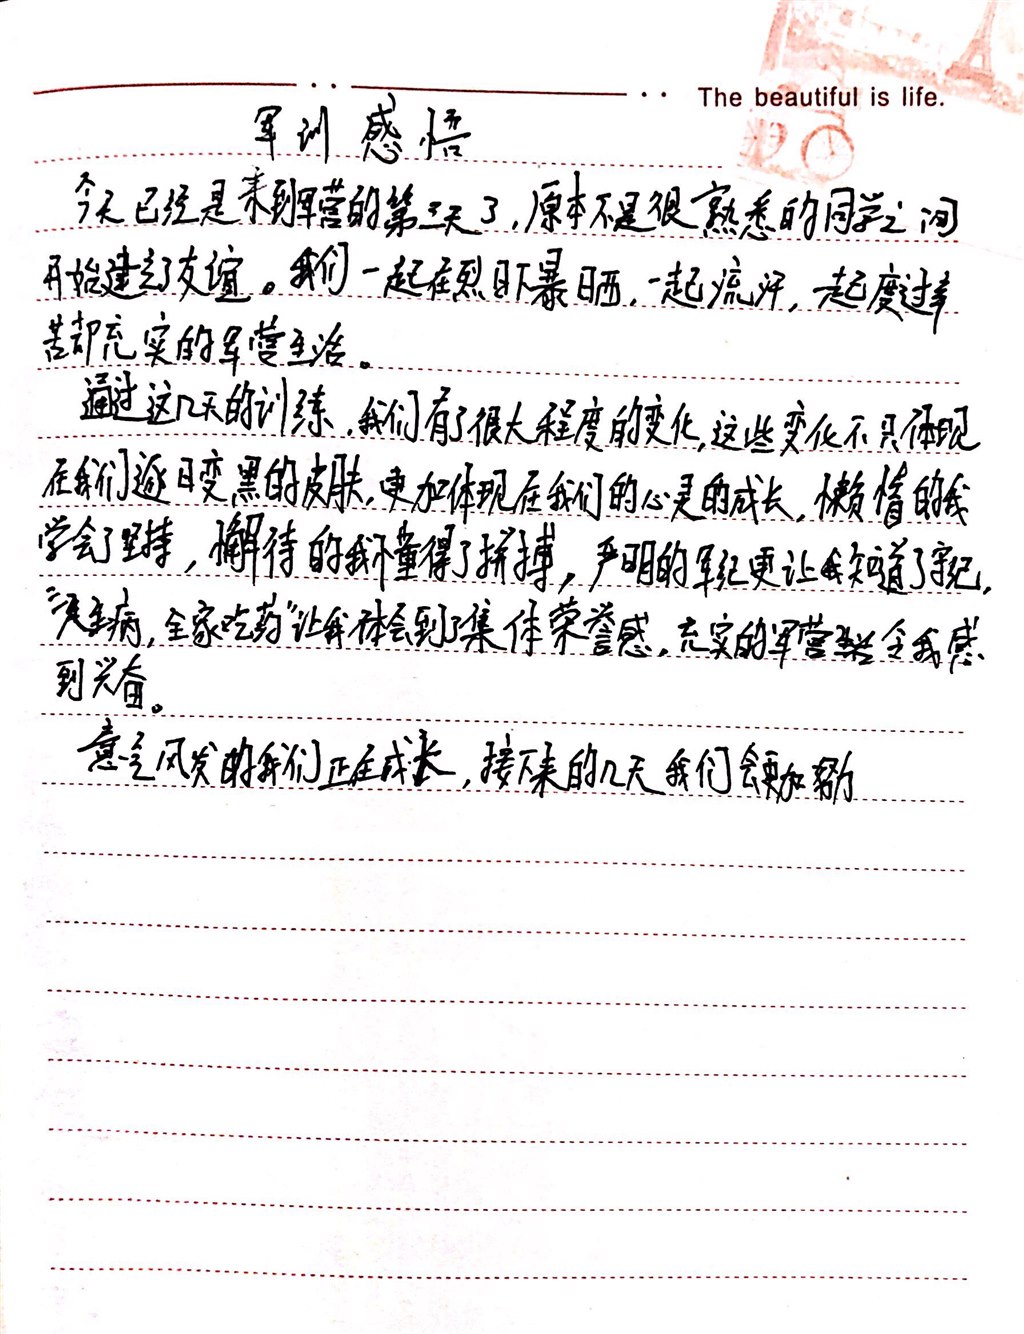 The beautiful is life.
军训感悟
今天已经是来到军营的第三天了，原本不是很熟悉的同学之间
开始建立了友谊。我们一起在烈日下暴晒，一起流汗，一起度过辛
苦却充实的军营生活。
通过这几天的训练，我们有了很大程度的变化，这些变化不只体现
在我们逐日变黑的皮肤，更加体现在我们的心灵的成长，懒惰的我
学会了坚持，懈待的我懂得了拼搏，严明的军纪更让我知道了守纪，
病，全家吃药"让我体会到了集体荣誉感，充实的军营令我感
到兴奋。
意气风发的我们正在成长，接下来的几天我们会更加努力